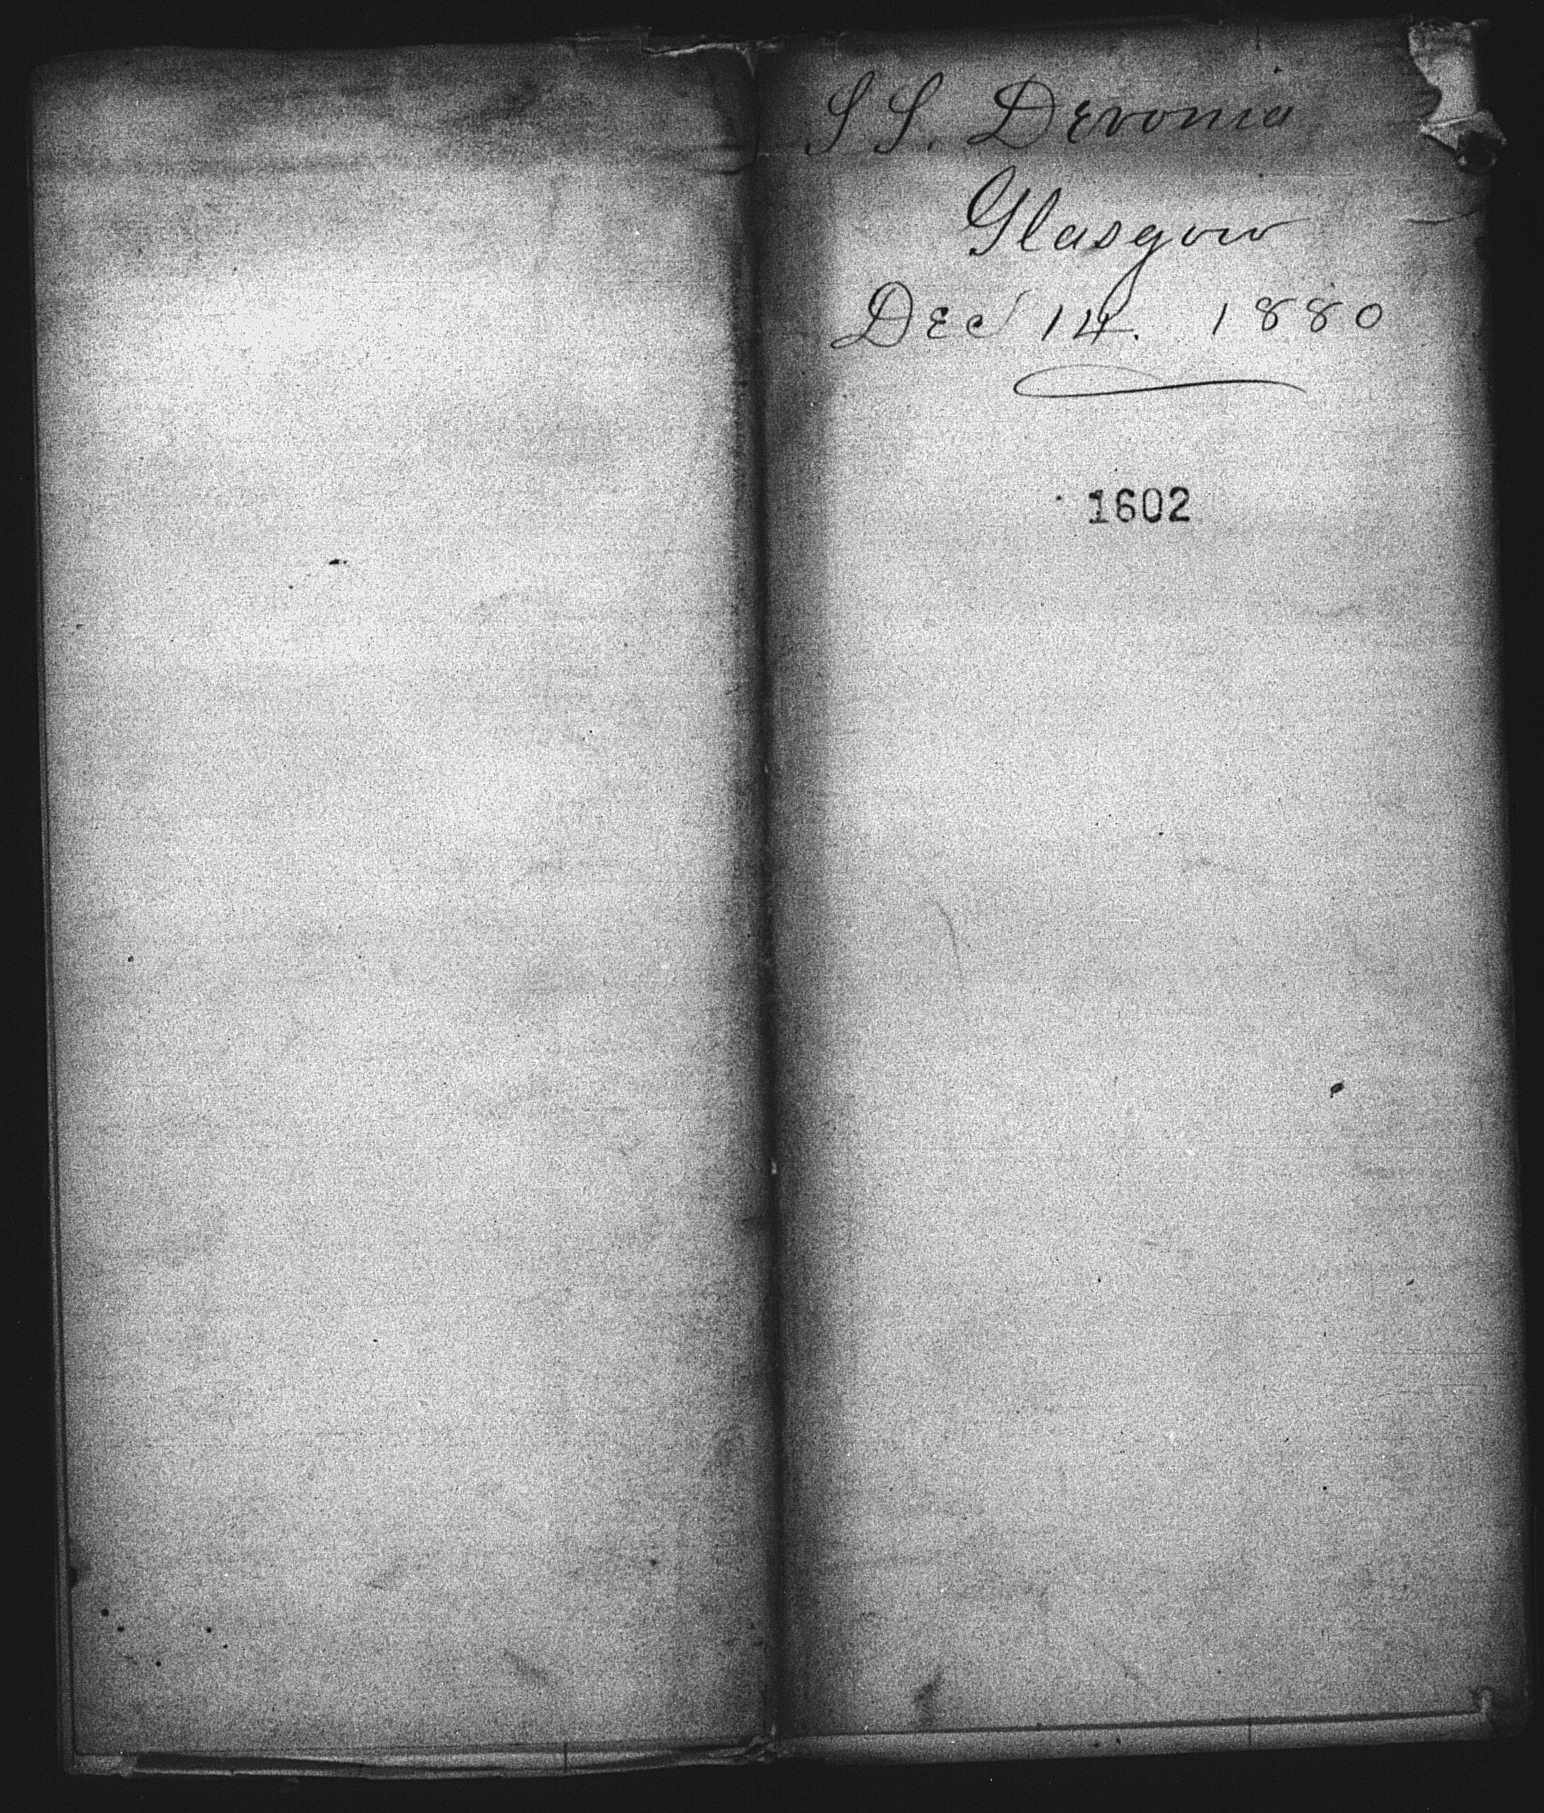 SS. Devonia
Glasgow
Dec 14. 1880
1602